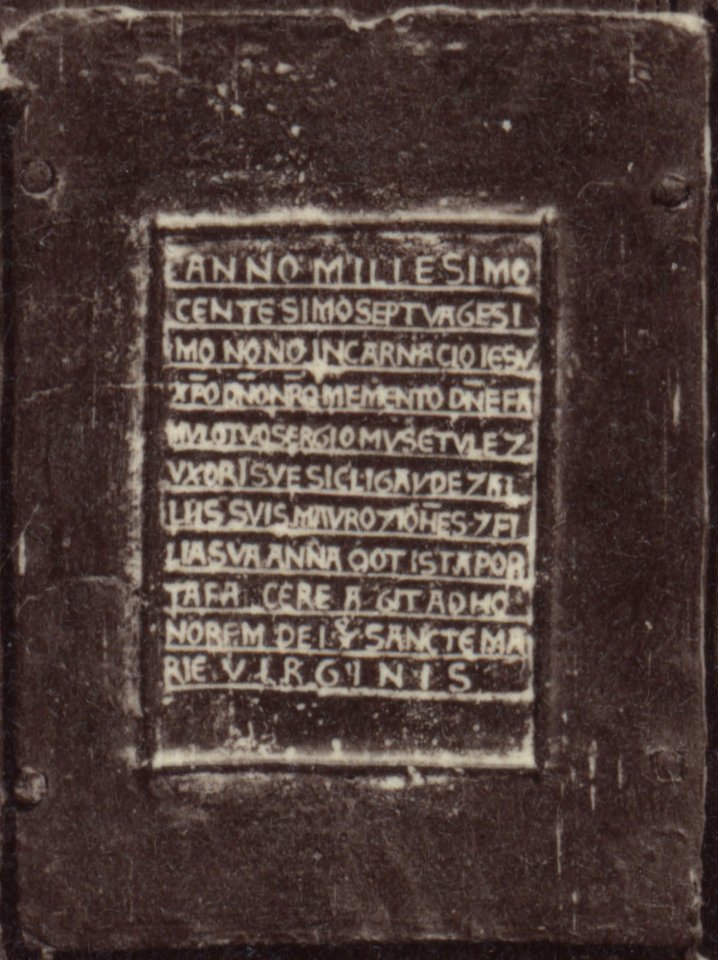 ANNO MILLESIMO
CENTESIMO SEPTVAGESI
MO NONO INCARNACIO IESV
XP̄O DN̄O NR̄O MEMENTO DN̄E FA
MVLO TVO SERGIO MVSETVLE 7
VXORI SVE SICLIGAVDE 7 AL
IIS SVIS MAVRO 7 IOH̄ES 7 FI
LIA SVA ANNA QOT ISTA POR
TA FA CERE AGIT AD HO
NOREM DEI & SANCTE MA
RIE VIRGINIS